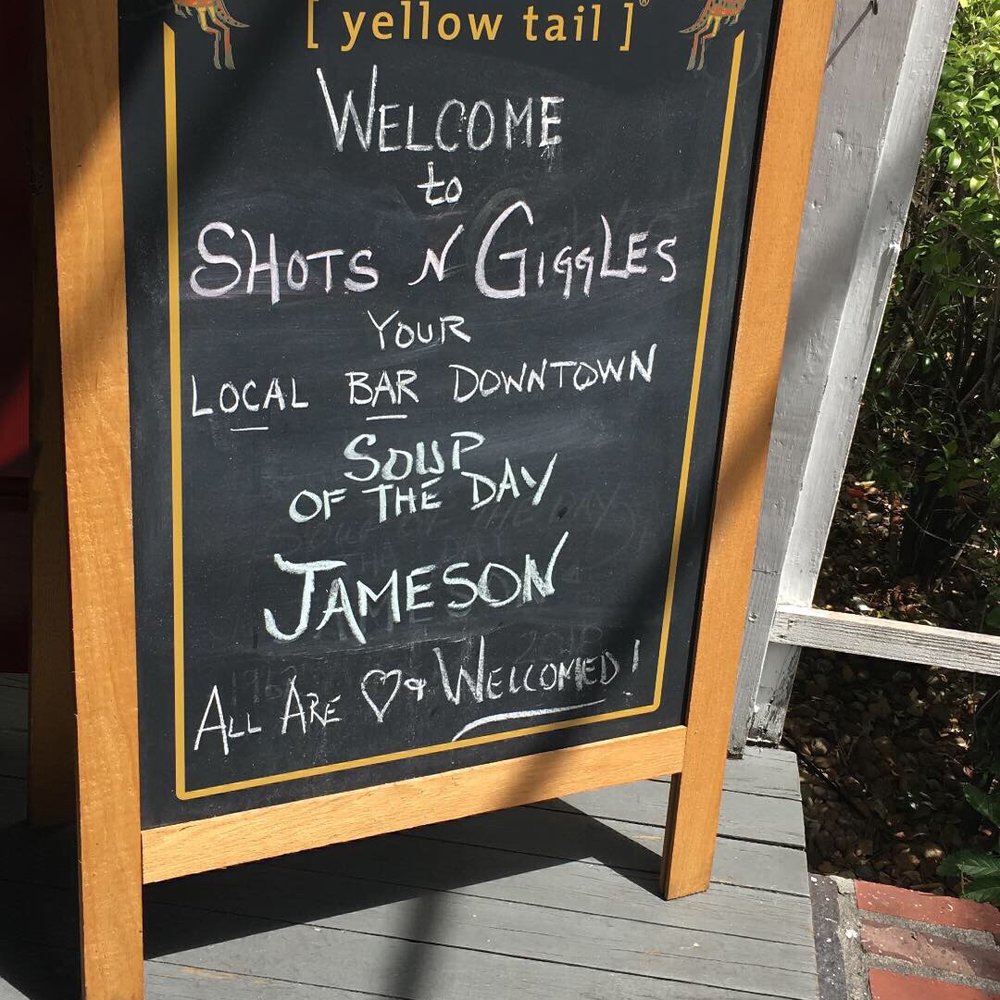 [ yellow tail ]®
WELCOME
to
SHOTS N GIGGLES
YOUR
LOCAL BAR DOWNTOWN
SOUP
OF THE DAY
JAMESON
ALL ARE ♡ & WELCOMED!